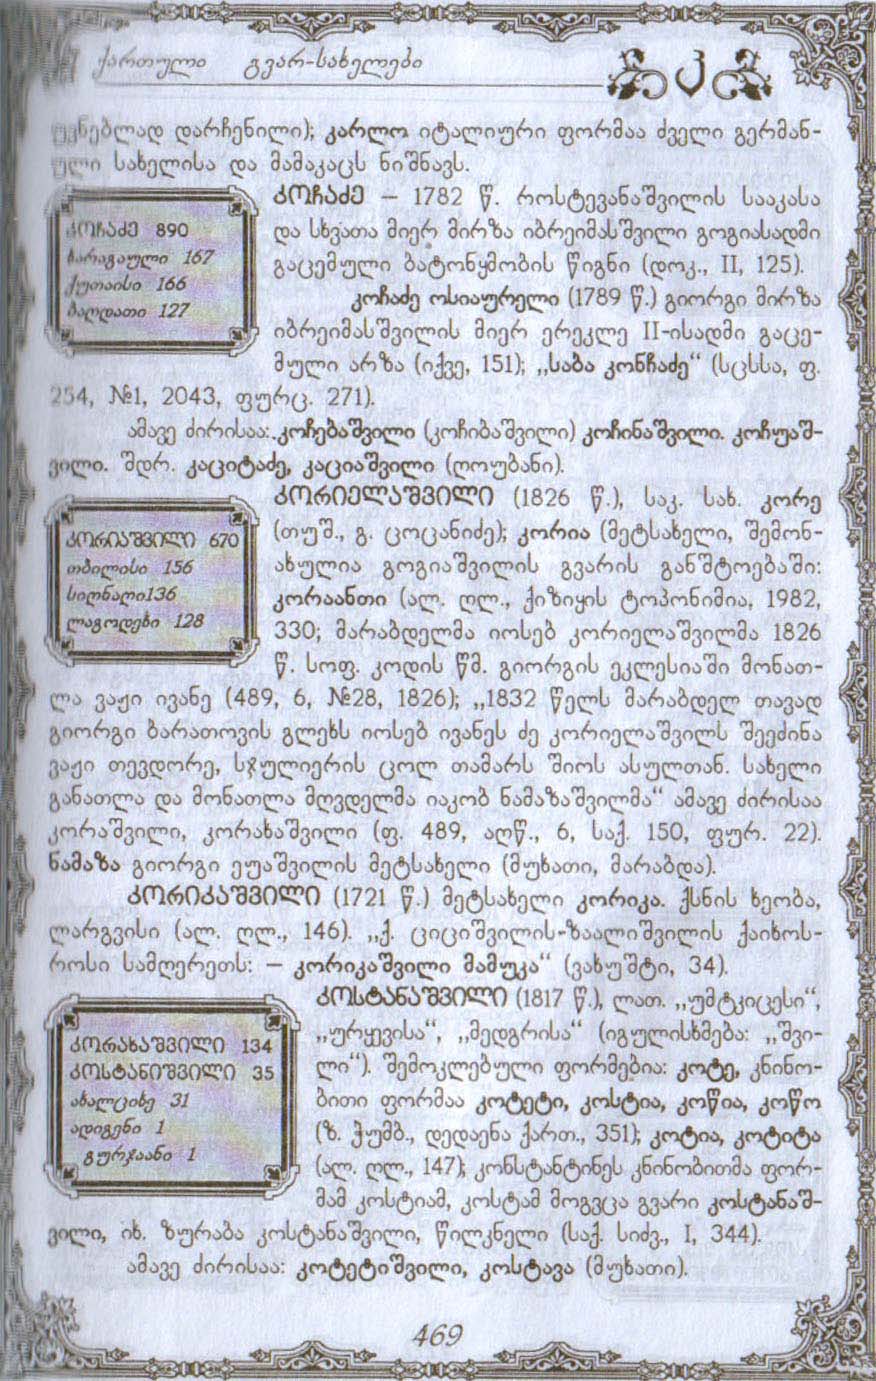 ქართული გვარ-სახელები
კ
დარჩენილი); კარლო იტალიური ფორმაა ძველი გერმან-
ული სახელისა და მამაკაცს ნიშნავს.
კოჩაძე 890
ბარაგაული 167
ქუთაისი 166
ბაღდათი 127
კოჩაძე – 1782 წ. როსტევანაშვილის სააკასა
და სხვათა მიერ მირზა იბრეიმასშვილი გოგიასადმი
გაცემული ბატონყმობის წიგნი (დოკ., II, 125).
კოჩაძე ოსიაურელი (1789 წ.) გიორგი მირზა
იბრეიმასშვილის მიერ ერეკლე II-ისადმი გაცე-
მული არზა (იქვე, 151); „საბა კონჩაძე“ (სცსსა, ფ.
254, №1, 2043, ფურც. 271).
ამავე ძირისაა: კოჩებაშვილი (კოჩიბაშვილი) კოჩინაშვილი. კოჩუაშ-
ვილი. შდრ. კაციტაძე, კაციაშვილი (ღოუბანი).
კორიაშვილი 670
თბილისი 156
სიღნაღი136
ლაგოდები 128
კორიელაშვილი (1826 წ.), საკ. სახ. კორე
(თუშ., გ. ცოცანიძე); კორია (მეტსახელი, შემონ-
ახულია გოგიაშვილის გვარის განშტოებაში:
კორაანთი (ალ. ღლ., ქიზიყის ტოპონიმია, 1982,
330; მარაბდელმა იოსებ კორიელაშვილმა 1826
წ. სოფ. კოდის წმ. გიორგის ეკლესიაში მონათ-
ლა ვაჟი ივანე (489, 6, №28, 1826); „1832 წელს მარაბდელ თავად
გიორგი ბარათოვის გლეხს იოსებ ივანეს ძე კორიელაშვილს შეეძინა
ვაჟი თევდორე, სჯულიერის ცოლ თამარს შიოს ასულთან. სახელი
განათლა და მონათლა მღვდელმა იაკობ ნამაზაშვილმა“ ამავე ძირისაა
კორაშვილი, კორახაშვილი (ფ. 489, აღწ., 6, საქ. 150, ფურ. 22).
ნამაზა გიორგი ეუაშვილის მეტსახელი (მუხათი, მარაბდა).
კორიკაშვილი (1721 წ.) მეტსახელი კორიკა. ქსნის ხეობა,
ლარგვისი (ალ. ღლ., 146). „ქ. ციციშვილის-ზაალიშვილის ქაიხოს-
როსი სამღერეთს: – კორიკაშვილი მამუკა“ (ვახუშტი, 34).
კორახაშვილი 134
კოსტანიშვილი 35
ახალციხე 31
ადიგენი 1
გურჯაანი 1
კოსტანაშვილი (1817 წ.), ლათ. „უმტკიცესი“,
„ურყევისა“, „მედგრისა“ (იგულისხმება: „შვი-
ლი“). შემოკლებული ფორმებია: კოტე, კნინო-
ბითი ფორმაა კოტეტი, კოსტია, კოწია, კოწო
(ზ. ჭუმბ., დედაენა ქართ., 351); კოტია, კოტიტა
(ალ. ღლ., 147); კონსტანტინეს კნინობითმა ფორ-
მამ კოსტიამ, კოსტამ მოგვცა გვარი კოსტანაშ-
ვილი, იხ. ზურაბა კოსტანაშვილი, წილკნელი (საქ. სიძვ., I, 344).
ამავე ძირისაა: კოტეტიშვილი, კოსტავა (მუხათი).
469